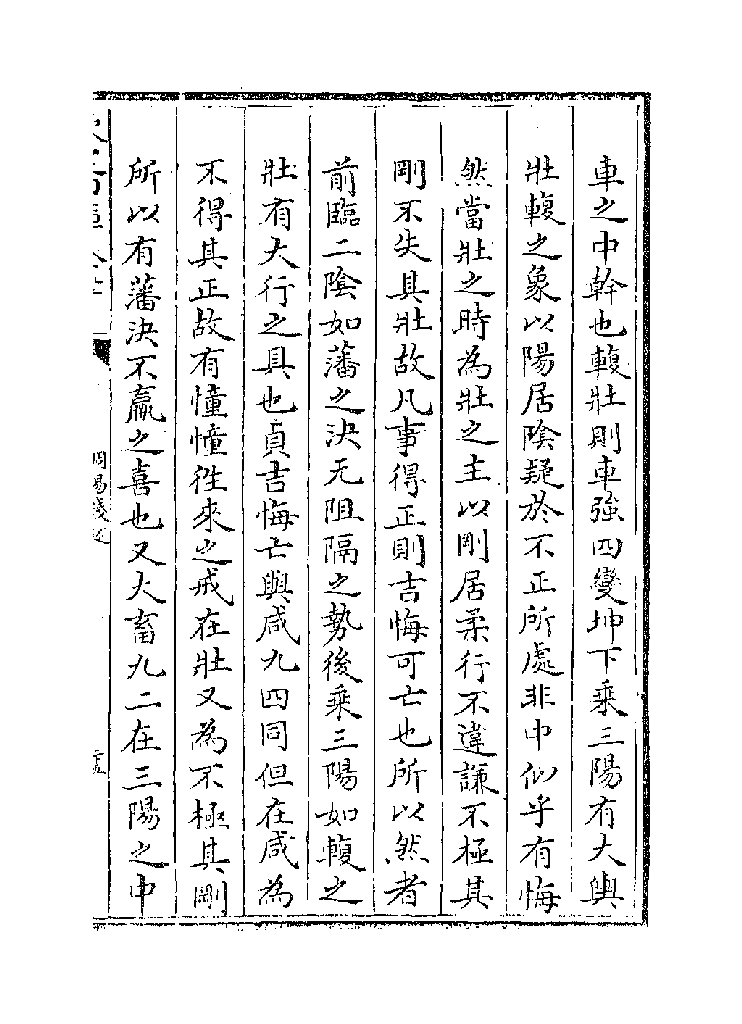 車之中幹也輹壯則車強四變坤下乘三陽有大輿
壯輹之象以陽居陰疑於不正所處非中似乎有悔
然當壯之時為壯之主以剛居柔行不違謙不極其
剛不失其壯故凡事得正則吉悔可亡也所以然者
前臨二陰如藩之決无阻隔之勢後乘三陽如輹之
壯有大行之具也貞吉悔亡與咸九四同但在咸為
不得其正故有憧憧徃來之戒在壯又為不極其剛
所以有藩決不羸之喜也又大畜九二在三陽之中